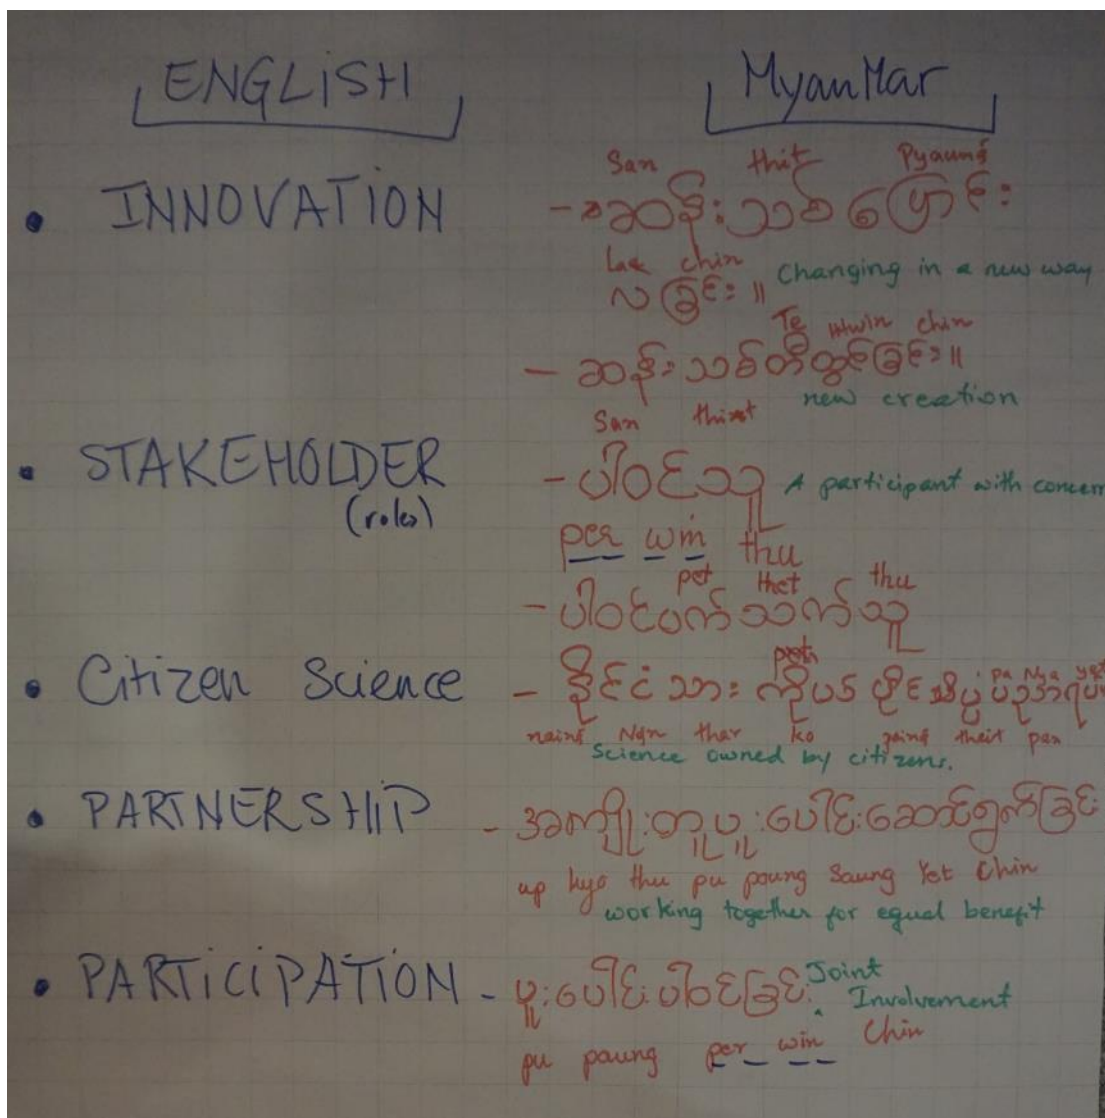 ENGLISH Myanmar
San thit Pyaung
• INNOVATION - ဆန်းသစ်ပြောင်း
lae chin
လဲခြင်း ။ Changing in a new way
Te htwin chin
- ဆန်းသစ်တီထွင်ခြင်း။
new creation
San thit
• STAKEHOLDER - ပါဝင်သူ A participant with concern
(roles)
per win thu
pet thet thu
- ပါဝင်ပတ်သက်သူ
pa nya yet
• Citizen Science - နိုင်ငံသား ကိုယ်ပိုင် သိပ္ပံ ပညာရပ်
naing Ngn thar ko paing theit pan
Science owned by citizens.
• PARTNERSHIP - အကျိုးတူပူးပေါင်းဆောင်ရွက်ခြင်း
up kyo thu pu poung Saung Yet Chin
working together for equal benefit
• PARTICIPATION - ပူးပေါင်းပါဝင်ခြင်း Joint
Involvement
pu paung per win Chin